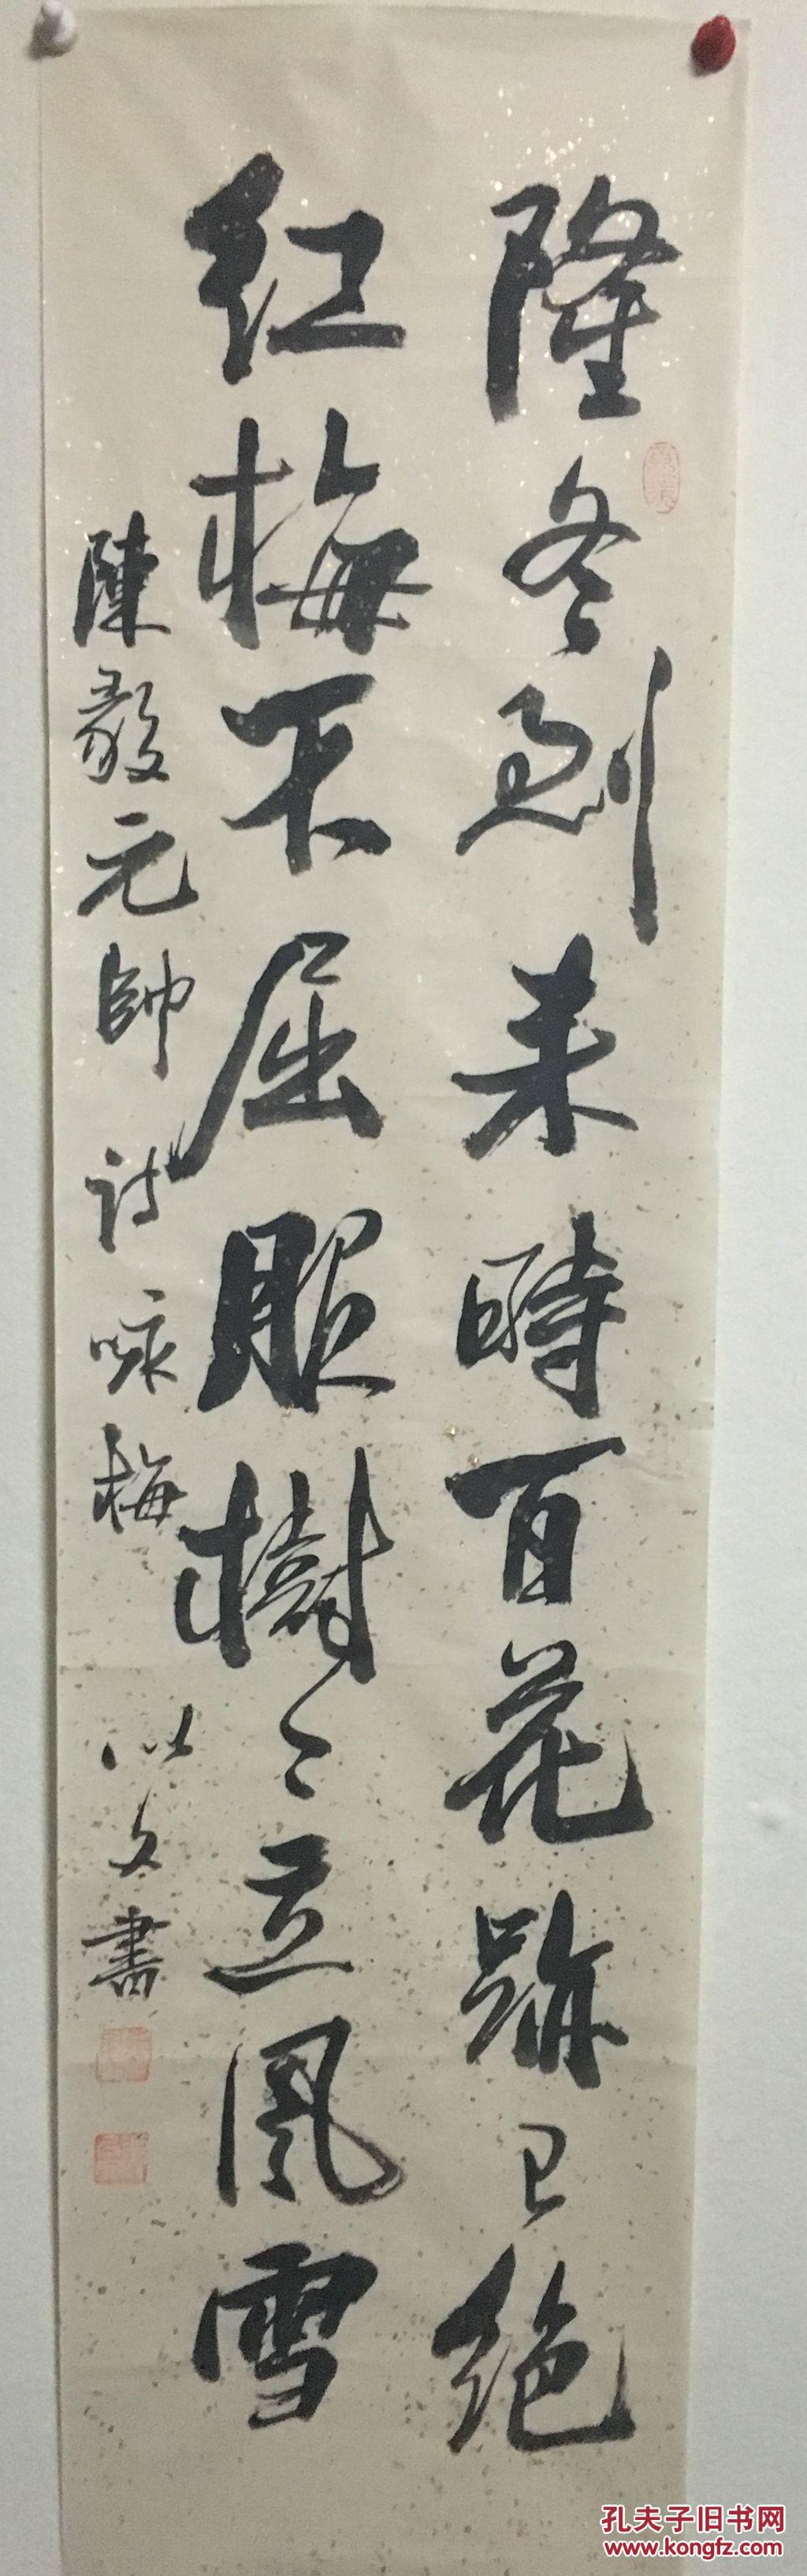 隆冬到来時百花跡已絶
红梅不屈服樹〻立風雪
陳毅元帥诗咏梅 以文書
孔夫子旧书网
www.kongfz.com